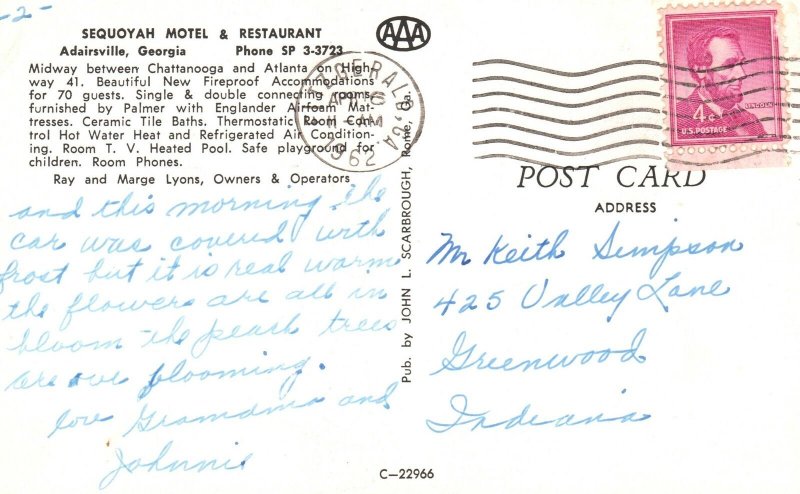 -2-
SEQUOYAH MOTEL & RESTAURANT
Adairsville, Georgia Phone SP 3-3723
AAA
Midway between Chattanooga and Atlanta on High-
way 41. Beautiful New Fireproof Accommodations
for 70 guests. Single & double connecting rooms,
furnished by Palmer with Englander Airfoam Mat-
tresses. Ceramic Tile Baths. Thermostatic Room Con-
trol Hot Water Heat and Refrigerated Air Condition-
ing. Room T. V. Heated Pool. Safe playground for
children. Room Phones.
Ray and Marge Lyons, Owners & Operators
and this morning the
car was covered with
frost but it is real warm
the flowers are all in
bloom the peach trees
are blooming.
love Grandma and
Johnnie
Pub. by JOHN L. SCARBROUGH, Rome, Ga.
GA
APR 6
AM
1962
4¢
LINCOLN
U.S. POSTAGE
POST CARD
ADDRESS
Mr Keith Simpson
425 Valley Lane
Greenwood
Indiana
C-22966